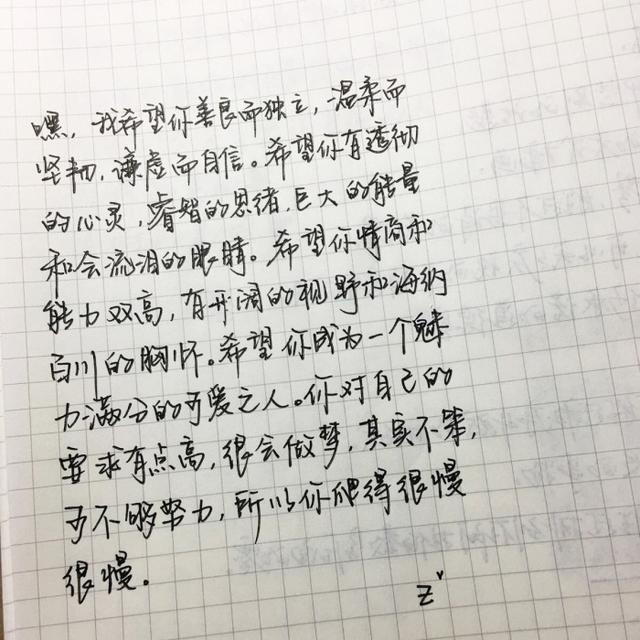 嘿，我希望你善良而独立，温柔而
坚韧，谦虚而自信。希望你有透彻
的心灵，睿智的思绪，巨大的能量
和会流泪的眼睛。希望你情商和
能力双高，有开阔的视野和海纳
百川的胸怀。希望你成为一个魅
力满分的可爱之人。你对自己的
要求有点高，很会做梦，其实不笨，
可不够努力，所以你爬得很慢
很慢。
Z